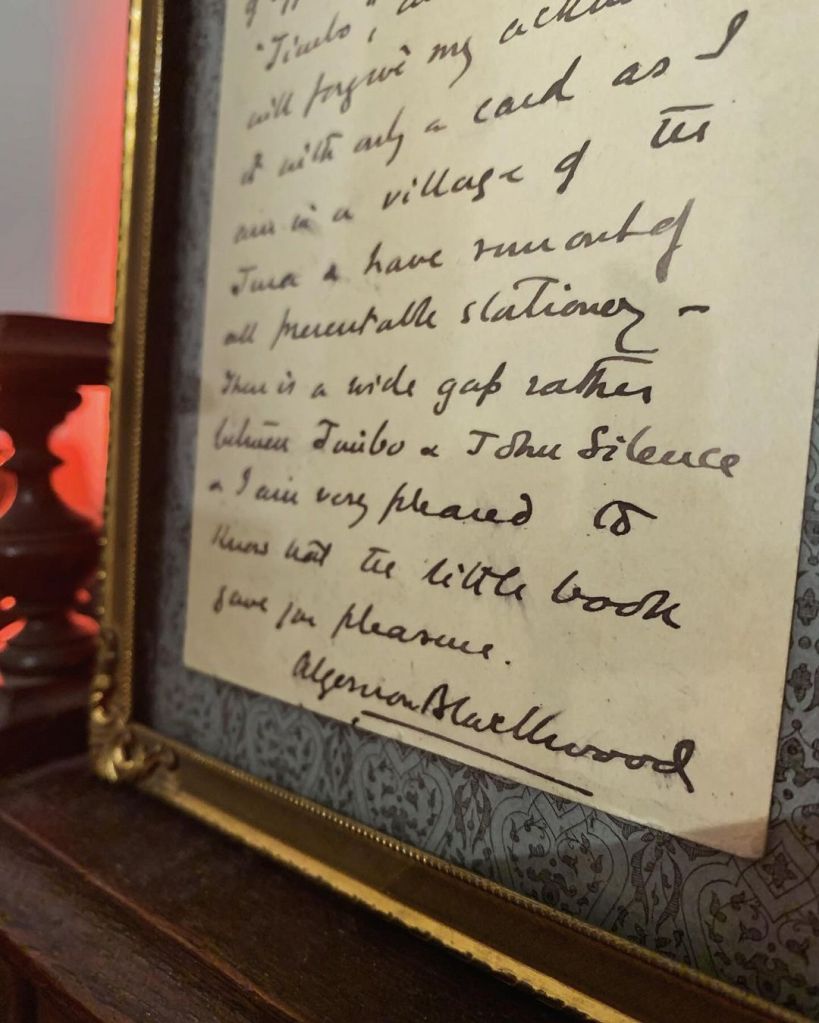 "Jimbo",
will forgive my
it with only a card as I
am in a village of the
Jura & have run out of
all presentable stationery –
There is a wide gap rather
between Jimbo & John Silence
& I am very pleased to
know that the little book
gave you pleasure.
Algernon Blackwood